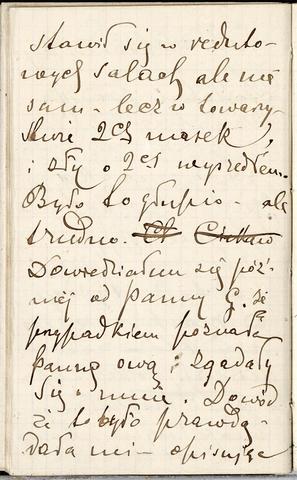 stawił się w reduto-
wych salach ale nie
sam - lecz w towarzy-
stwie 2ch masek,
i zły o 2ej wyszedłem.
Było to głupio - ale
trudno.
Dowiedziałem się póź-
niej od panny G. że
przypadkiem poznała
pannę ową i zgadały
się o mnie. Dowód
że to było prawdą -
dała mi - opisując